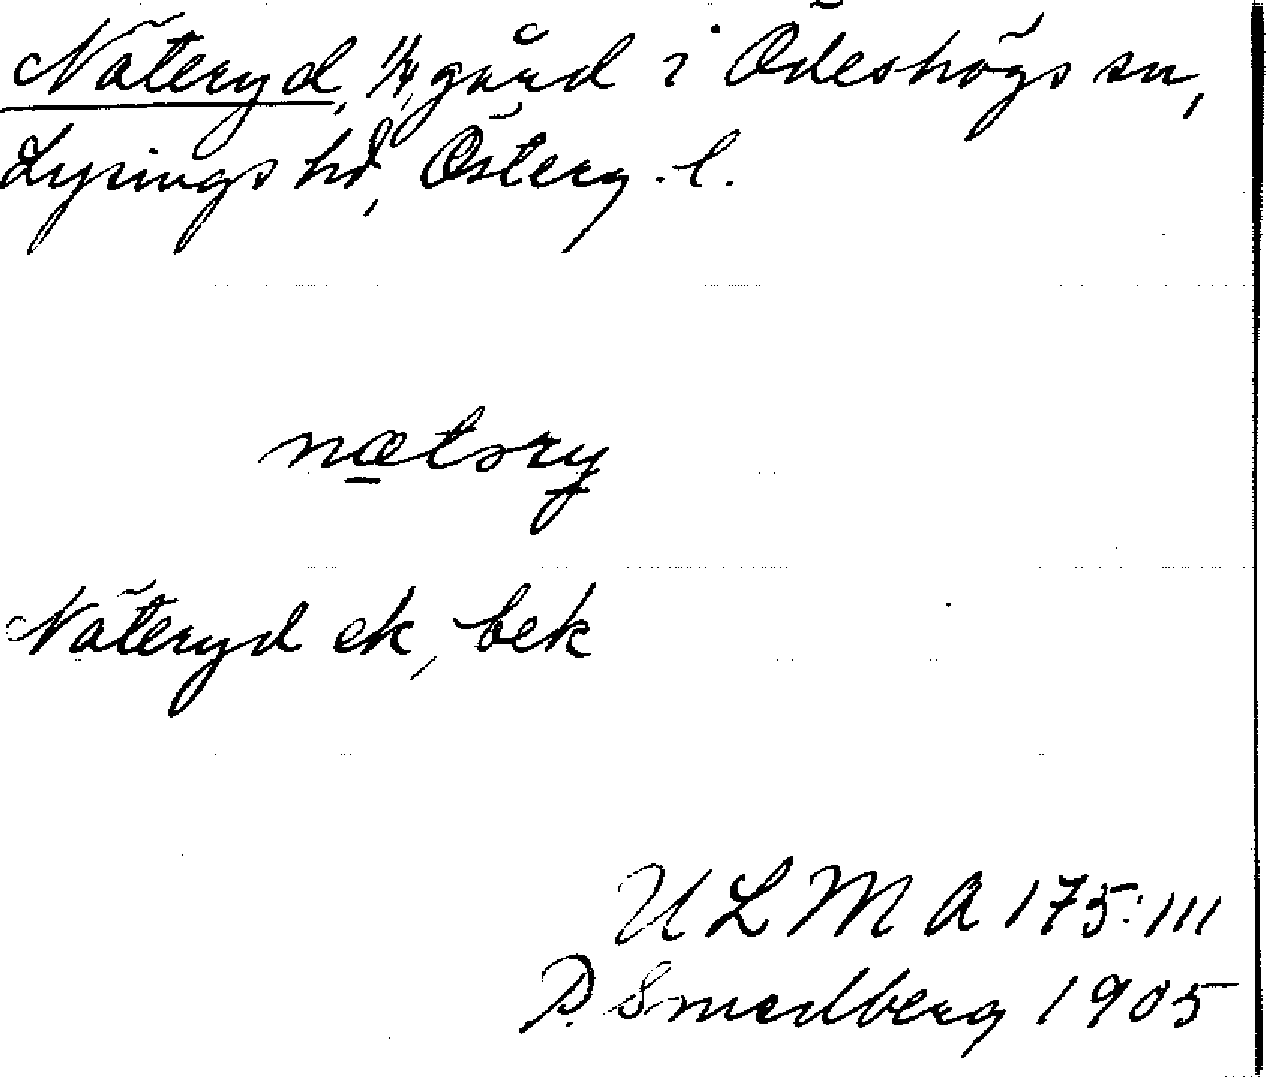 Näteryd, 1/4, gård i Ödeshögs sn,
Lysings hd, Österg. l.
nætsry
Näteryd ek, bek
ULMA 175:111
P. Smedberg 1905